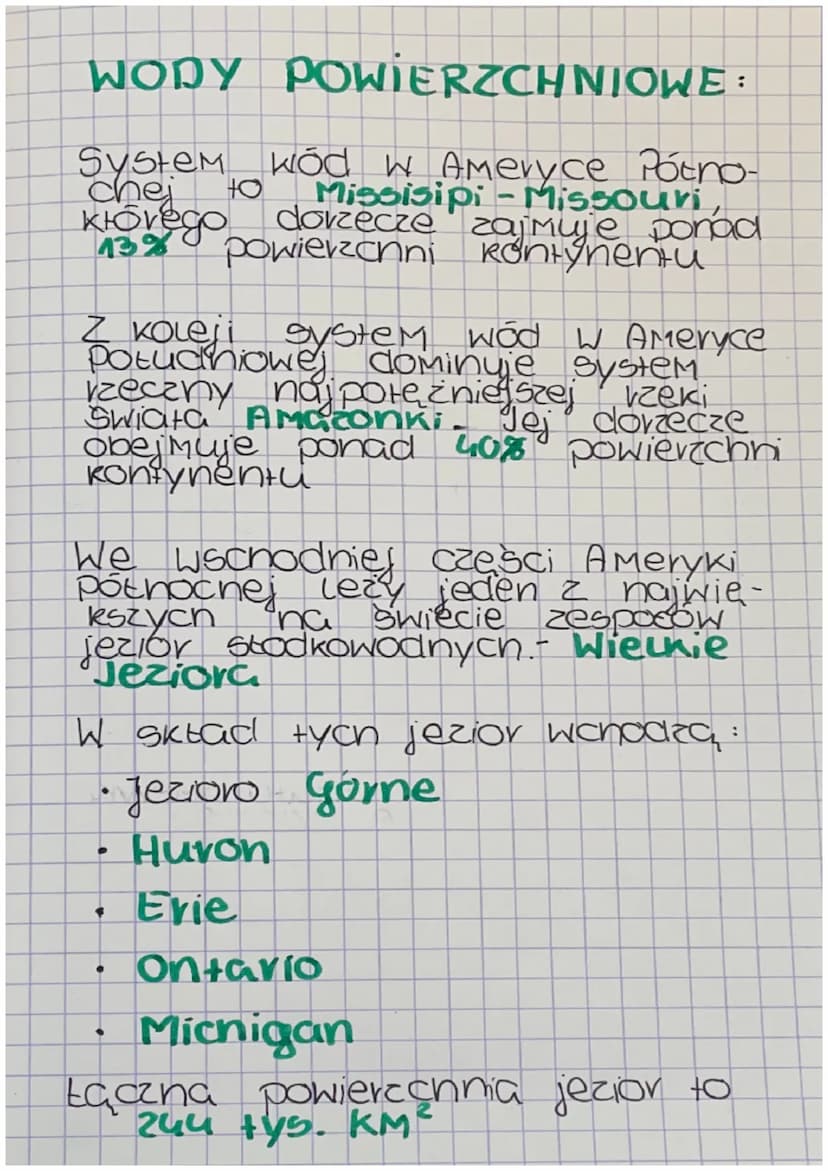 WODY POWIERZCHNIOWE:
System wód w Ameryce Północ-
nej to Missisipi - Missouri,
którego dorzecze zajmuje ponad
13% powierzchni kontynentu
Z koleji system wód w Ameryce
Południowej dominuje system
rzeczny najpotężniejszej rzeki
świata Amazonki. Jej dorzecze
obejmuje ponad 40% powierzchni
kontynentu
We wschodniej części Ameryki
Północnej leży jeden z najwię-
kszych na świecie zespołów
jezior słodkowodnych.- Wielkie
Jeziora
W skład tych jezior wchodzą:
• Jezioro Górne
• Huron
• Erie
• Ontario
• Michigan
Łączna powierzchnia jezior to
244 tys. km²